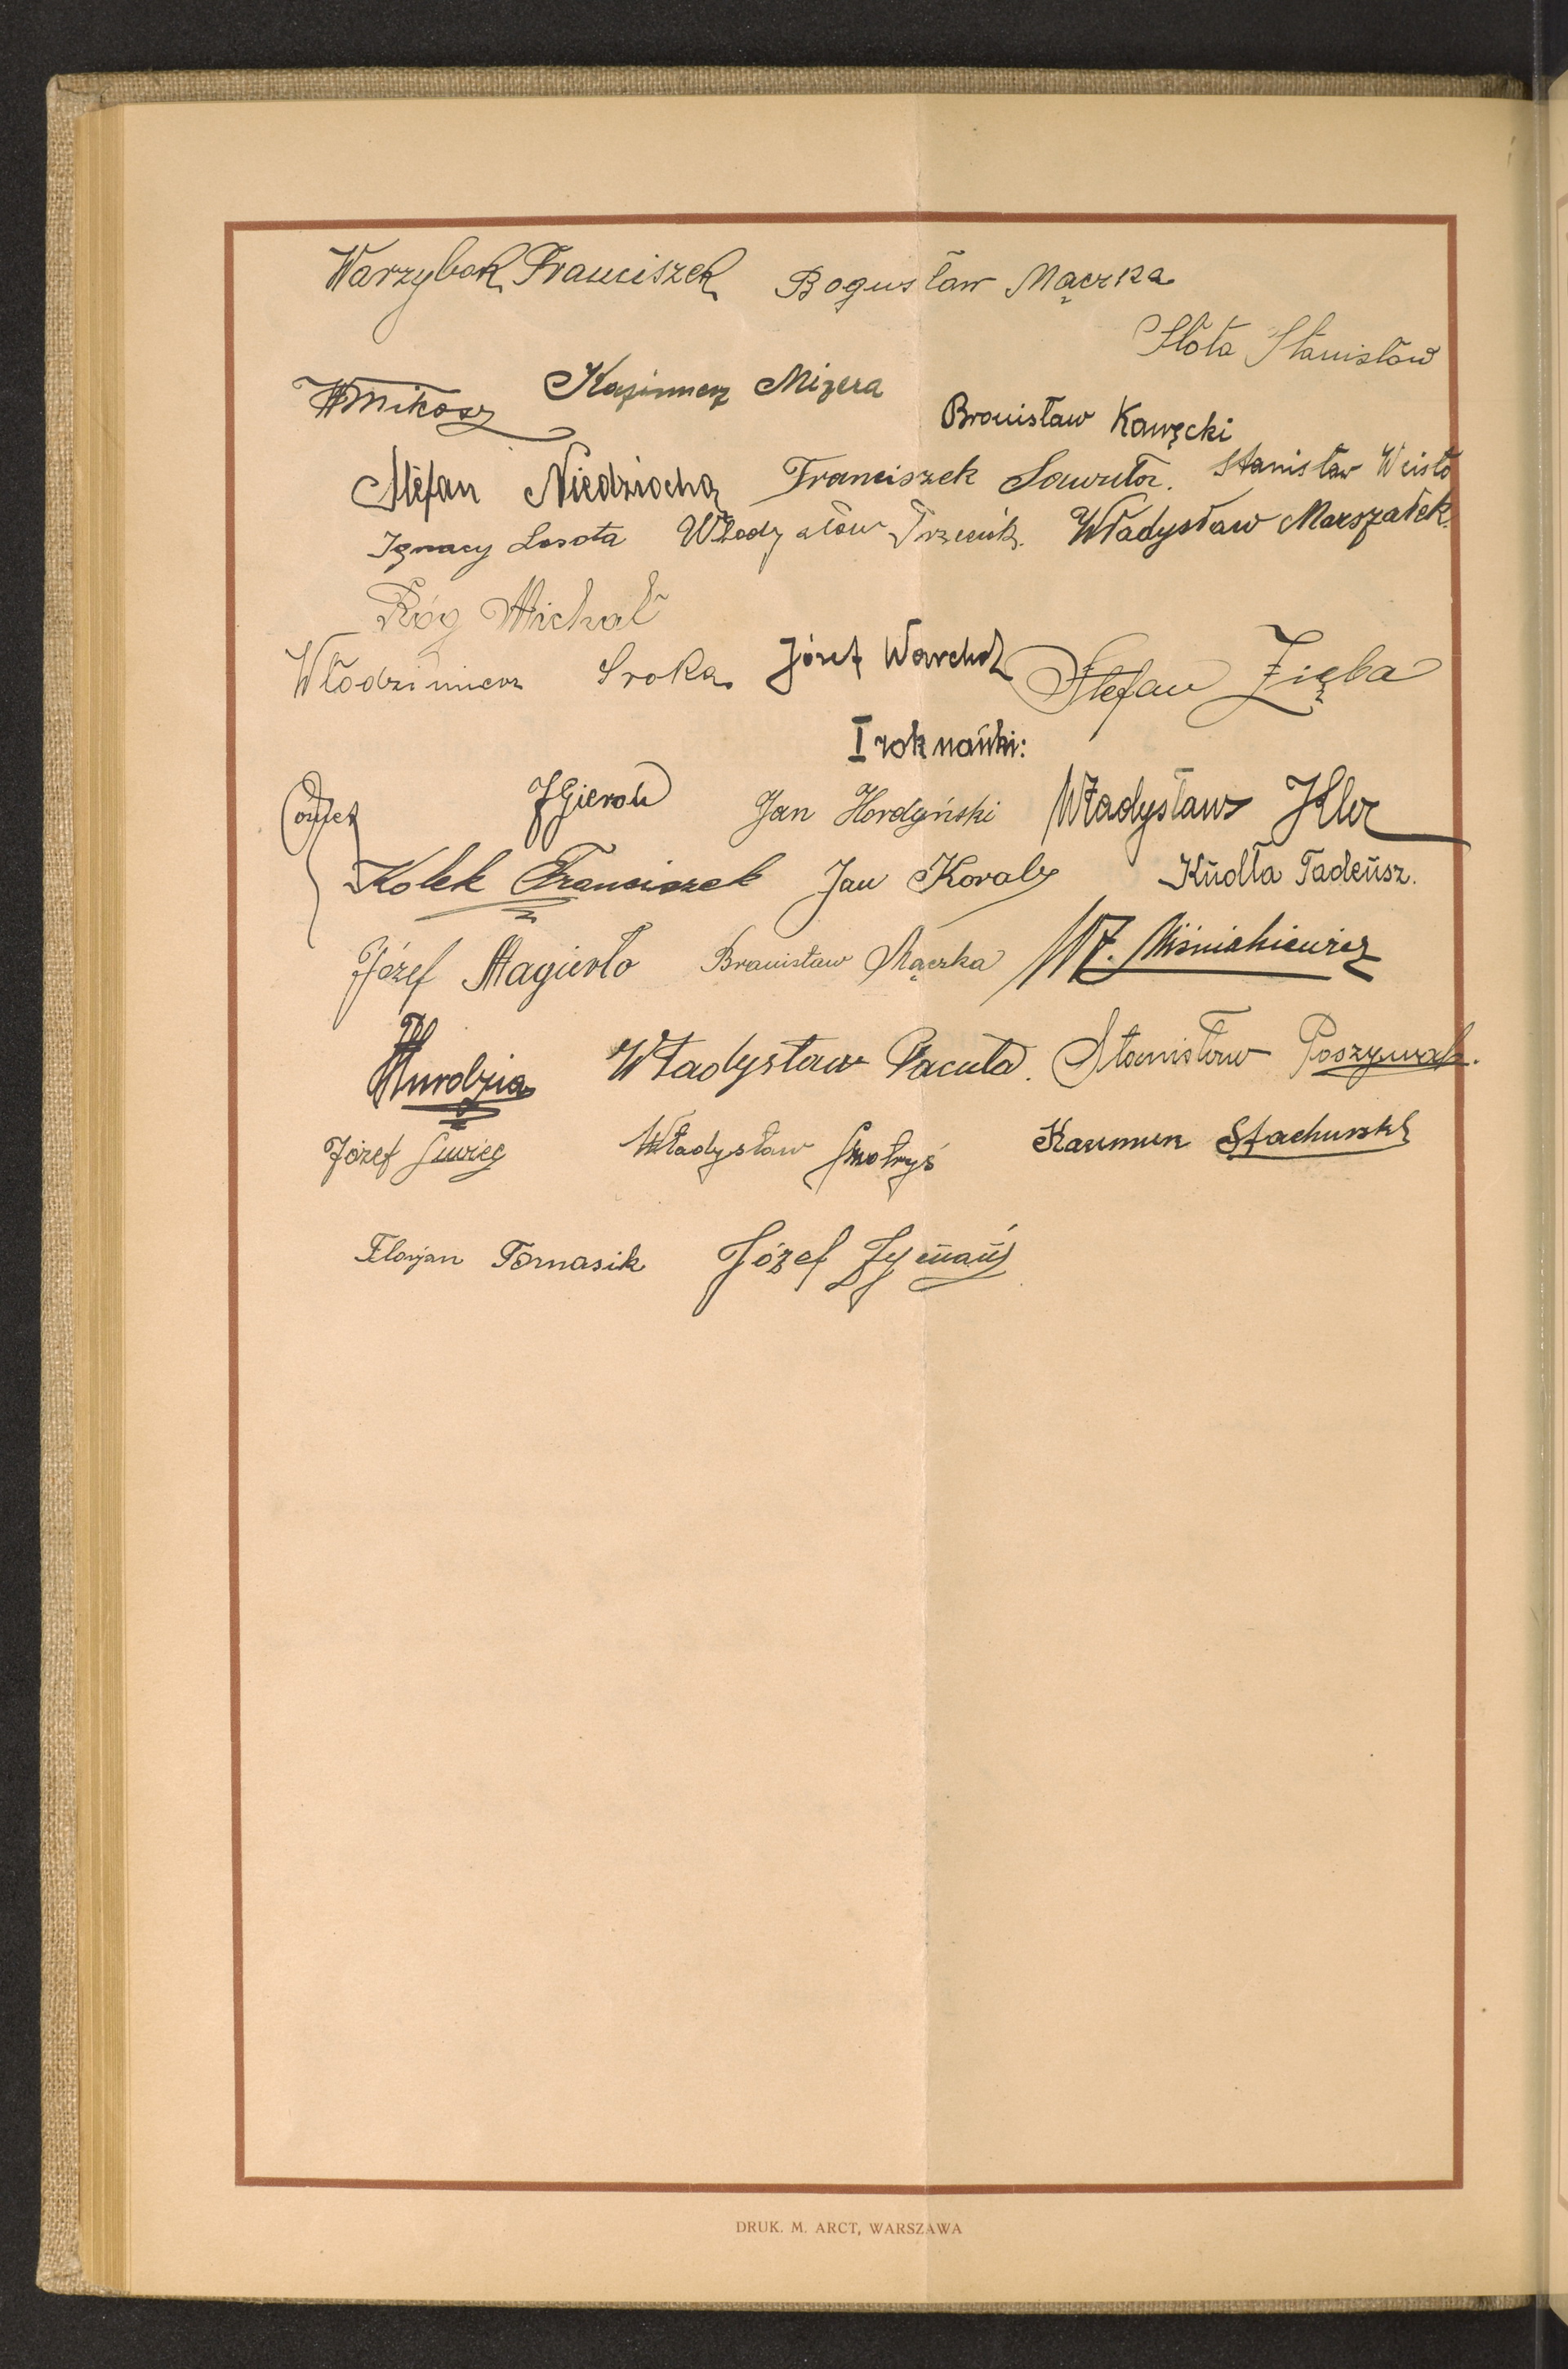 Warzybok Franciszek Bogusław Mączka
Słota Stanisław
W Mikosz Kazimierz Mizera
Bronisław Kawęcki
Stefan Niedziocha Franciszek Sawuła. Stanisław Weisło
Ignacy Lasota Władysław Marszałek.
Róg Michał
Włodzimierz Sroka Józef Warchoł Stefan Zięba
I rok nauki:
JGieroń Jan Hordyński Władysław
Kolek Franciszek Jan Koraly Kudła Tadeusz.
Józef Magierło Bronisław Mączka Wł. Miśniakiewicz
Murdzia Władysław Pacuła. Stanisław Poszywak.
Józef Siwiec Władysław Smotryś Stachurski
Florjan Tomasik Józef
DRUK. M. ARCT, WARSZAWA